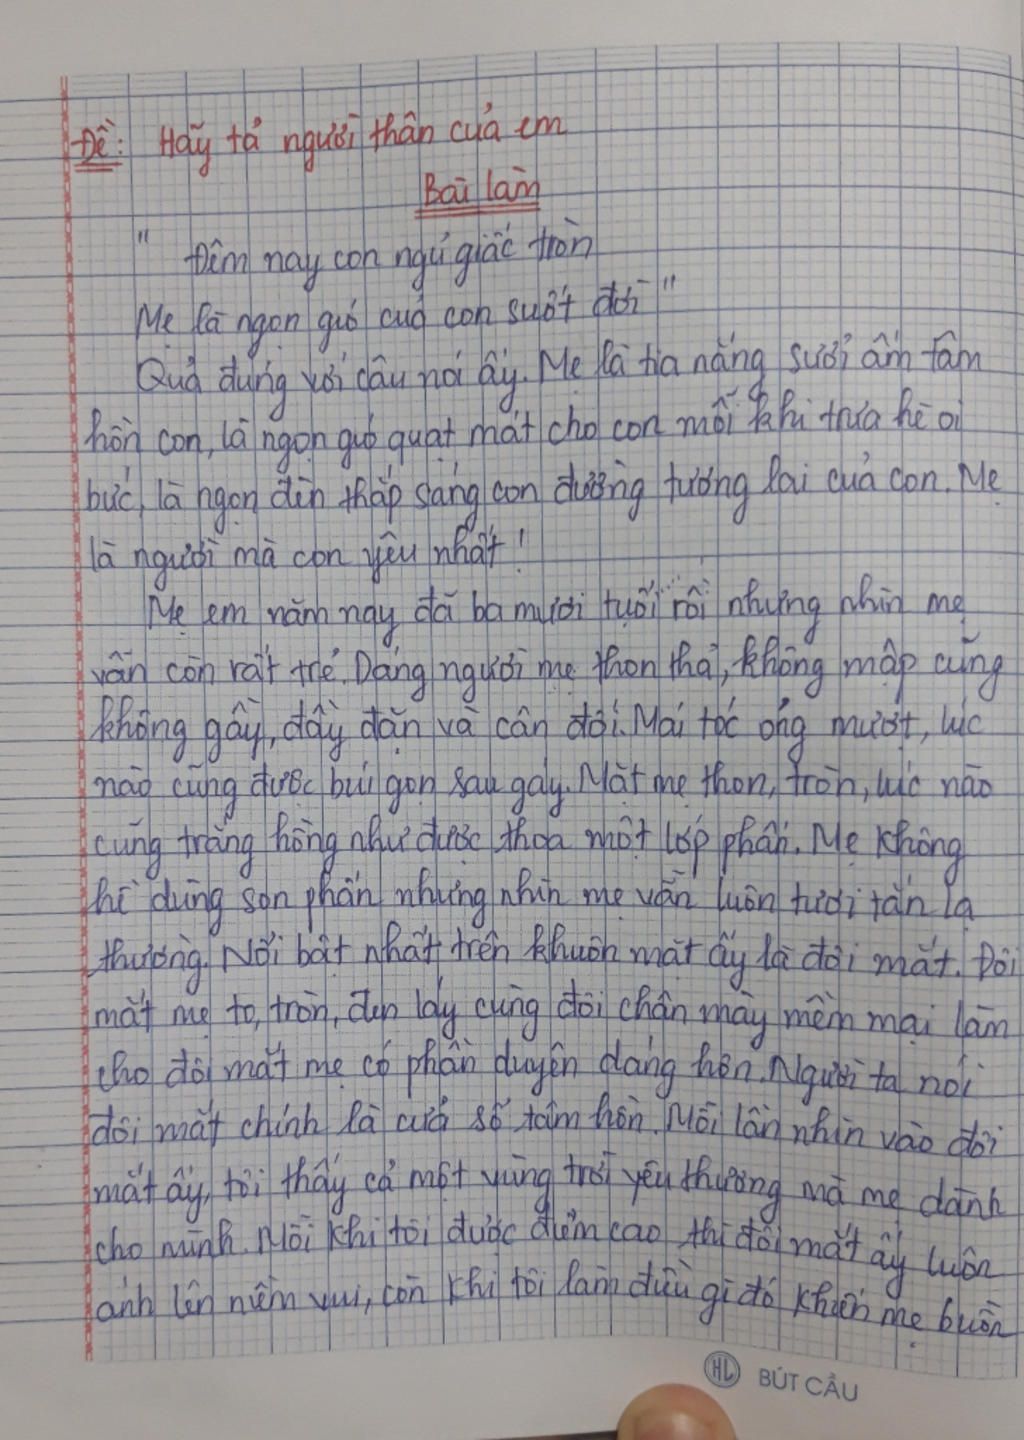 Đề: Hãy tả người thân của em
Bài làm
" Đêm nay con ngủ giấc tròn
Mẹ là ngọn gió của con suốt đời "
Quả đúng với câu nói ấy. Mẹ là tia nắng sưởi ấm tâm
hồn con, là ngọn gió quạt mát cho con mỗi khi trưa hè oi
bức, là ngọn đèn thắp sáng con đường tương lai của con. Mẹ
là người mà con yêu nhất!
Mẹ em năm nay đã ba mươi tuổi rồi nhưng nhìn mẹ
vẫn còn rất trẻ. Dáng người mẹ thon thả, không mập cũng
không gầy, đầy đặn và cân đối. Mái tóc óng mượt, lúc
nào cũng được búi gọn sau gáy. Mặt mẹ thon, tròn, lúc nào
cũng trắng hồng như được thoa một lớp phấn. Mẹ không
hề dùng son phấn nhưng nhìn mẹ vẫn luôn tươi tắn lạ
thường. Nổi bật nhất trên khuôn mặt ấy là đôi mắt. Đôi
mắt mẹ to, tròn, đen láy cùng đôi chân mày mềm mại làm
cho đôi mắt mẹ có phần duyên dáng hơn. Người ta nói
đôi mắt chính là cửa sổ tâm hồn. Mỗi lần nhìn vào đôi
mắt ấy, tôi thấy cả một vùng trời yêu thương mà mẹ dành
cho mình. Mỗi khi tôi được điểm cao thì đôi mắt ấy luôn
ánh lên niềm vui, còn khi tôi làm điều gì đó khiến mẹ buồn
HL BÚT CẦU